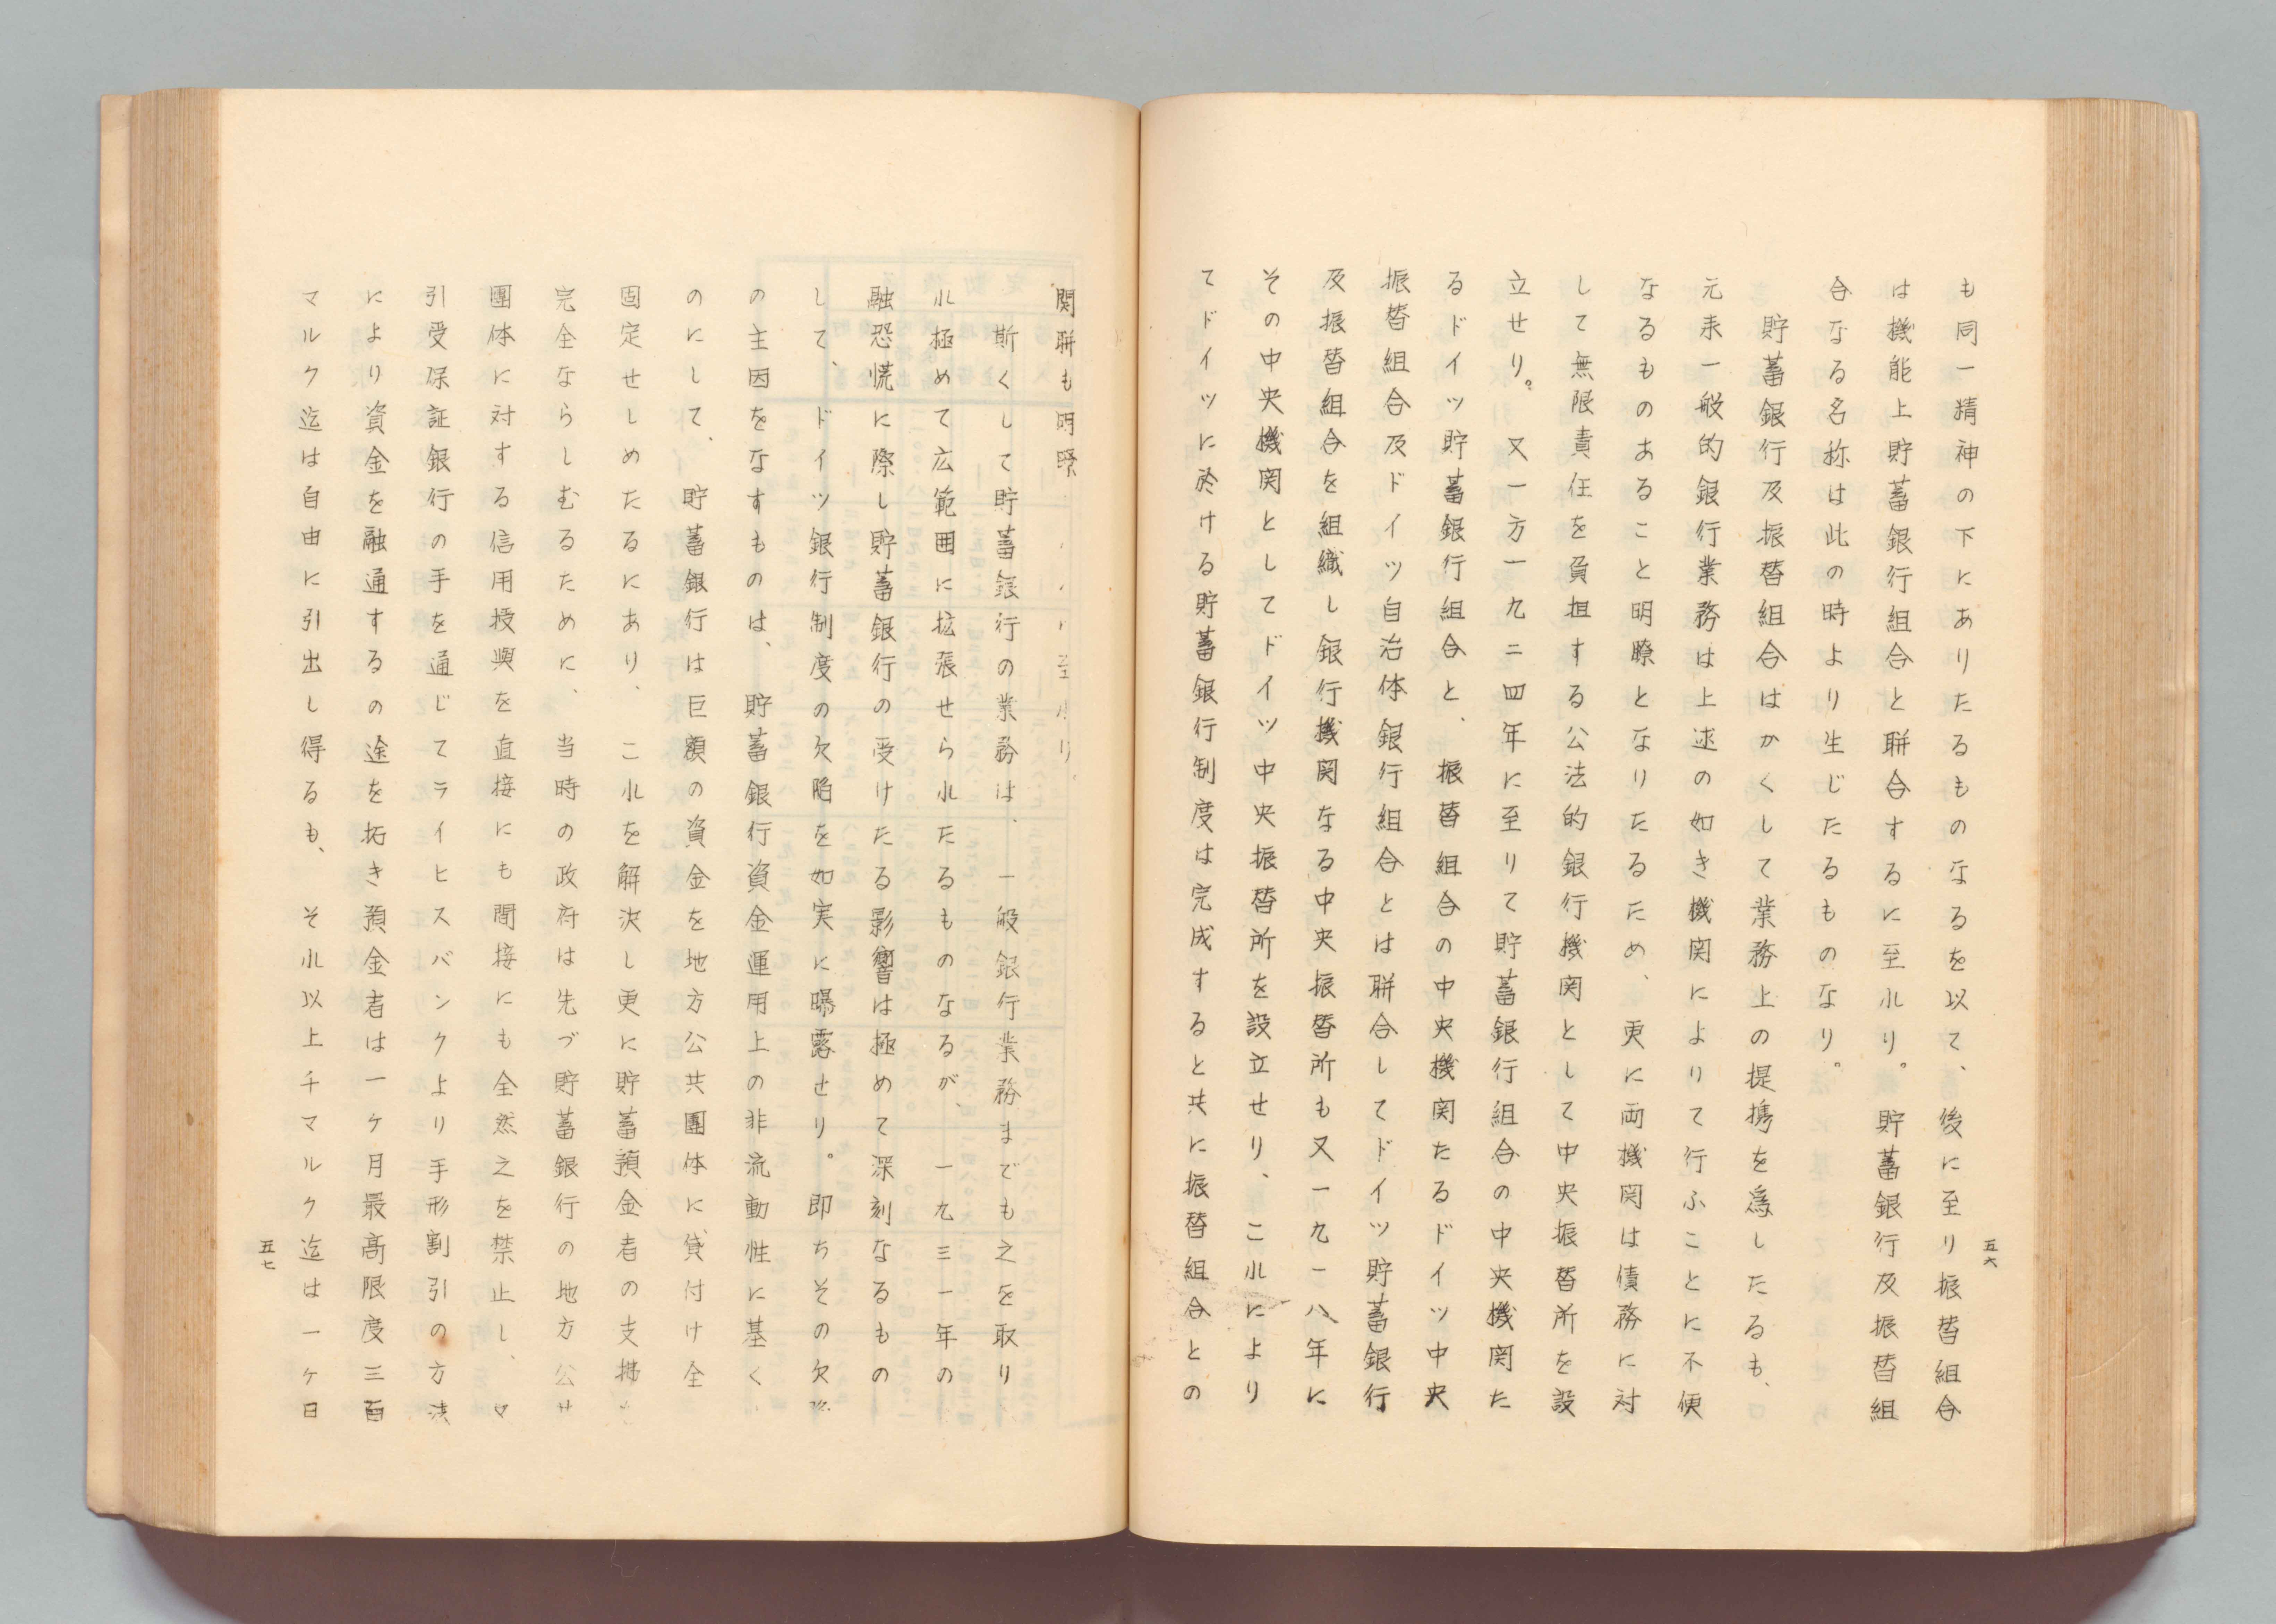 五六
も同一精神の下にありたるものなるを以て、後に至り振替組合
は機能上貯蓄銀行組合と聯合するに至れり。貯蓄銀行及振替組
合なる名称は此の時より生じたるものなり。
貯蓄銀行及振替組合はかくして業務上の提携を為したるも、
元来一般的銀行業務は上述の如き機関によりて行ふことに不便
なるものあること明瞭となりたるため、更に両機関は債務に対
して無限責任を負担する公法的銀行機関として中央振替所を設
立せり。又一方一九二四年に至りて貯蓄銀行組合の中央機関た
るドイツ貯蓄銀行組合と、振替組合の中央機関たるドイツ中央
振替組合及ドイツ自治体銀行組合とは聯合してドイツ貯蓄銀行
及振替組合を組織し銀行機関なる中央振替所も又一九一八年に
その中央機関としてドイツ中央振替所を設立せり、これにより
てドイツに於ける貯蓄銀行制度は完成すると共に振替組合との
関聯も明瞭に至れり。
斯くして貯蓄銀行の業務は、一般銀行業務までも之を取り
れ極めて広範囲に拡張せられたるものなるが、一九三一年の
融恐慌に際し貯蓄銀行の受けたる影響は極めて深刻なるもの
して、ドイツ銀行制度の欠陥を如実に曝露せり。即ちその欠
の主因をなすものは、貯蓄銀行資金運用上の非流動性に基く
のにして、貯蓄銀行は巨額の資金を地方公共團体に貸付け全
固定せしめたるにあり、これを解決し更に貯蓄預金者の支拂
完全ならしむるために、当時の政府は先づ貯蓄銀行の地方公
團体に対する信用授與を直接にも間接にも全然之を禁止し、
引受保証銀行の手を通じてライヒスバンクより手形割引の方法
により資金を融通するの途を拓き預金者は一ケ月最高限度三百
マルク迄は自由に引出し得るも、それ以上千マルク迄は一ケ日
五七